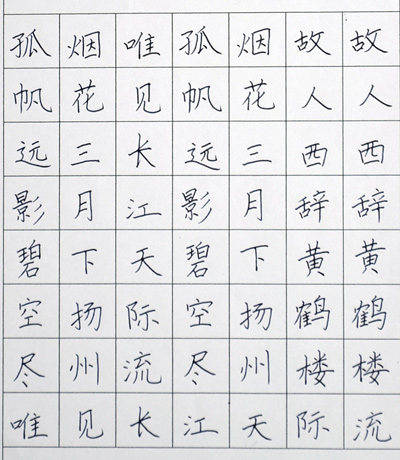 故人西辞黄鹤楼
故人西辞黄鹤楼
烟花三月下扬州
孤帆远影碧空尽
唯见长江天际流
烟花三月下扬州
孤帆远影碧空尽
唯见长江天际流